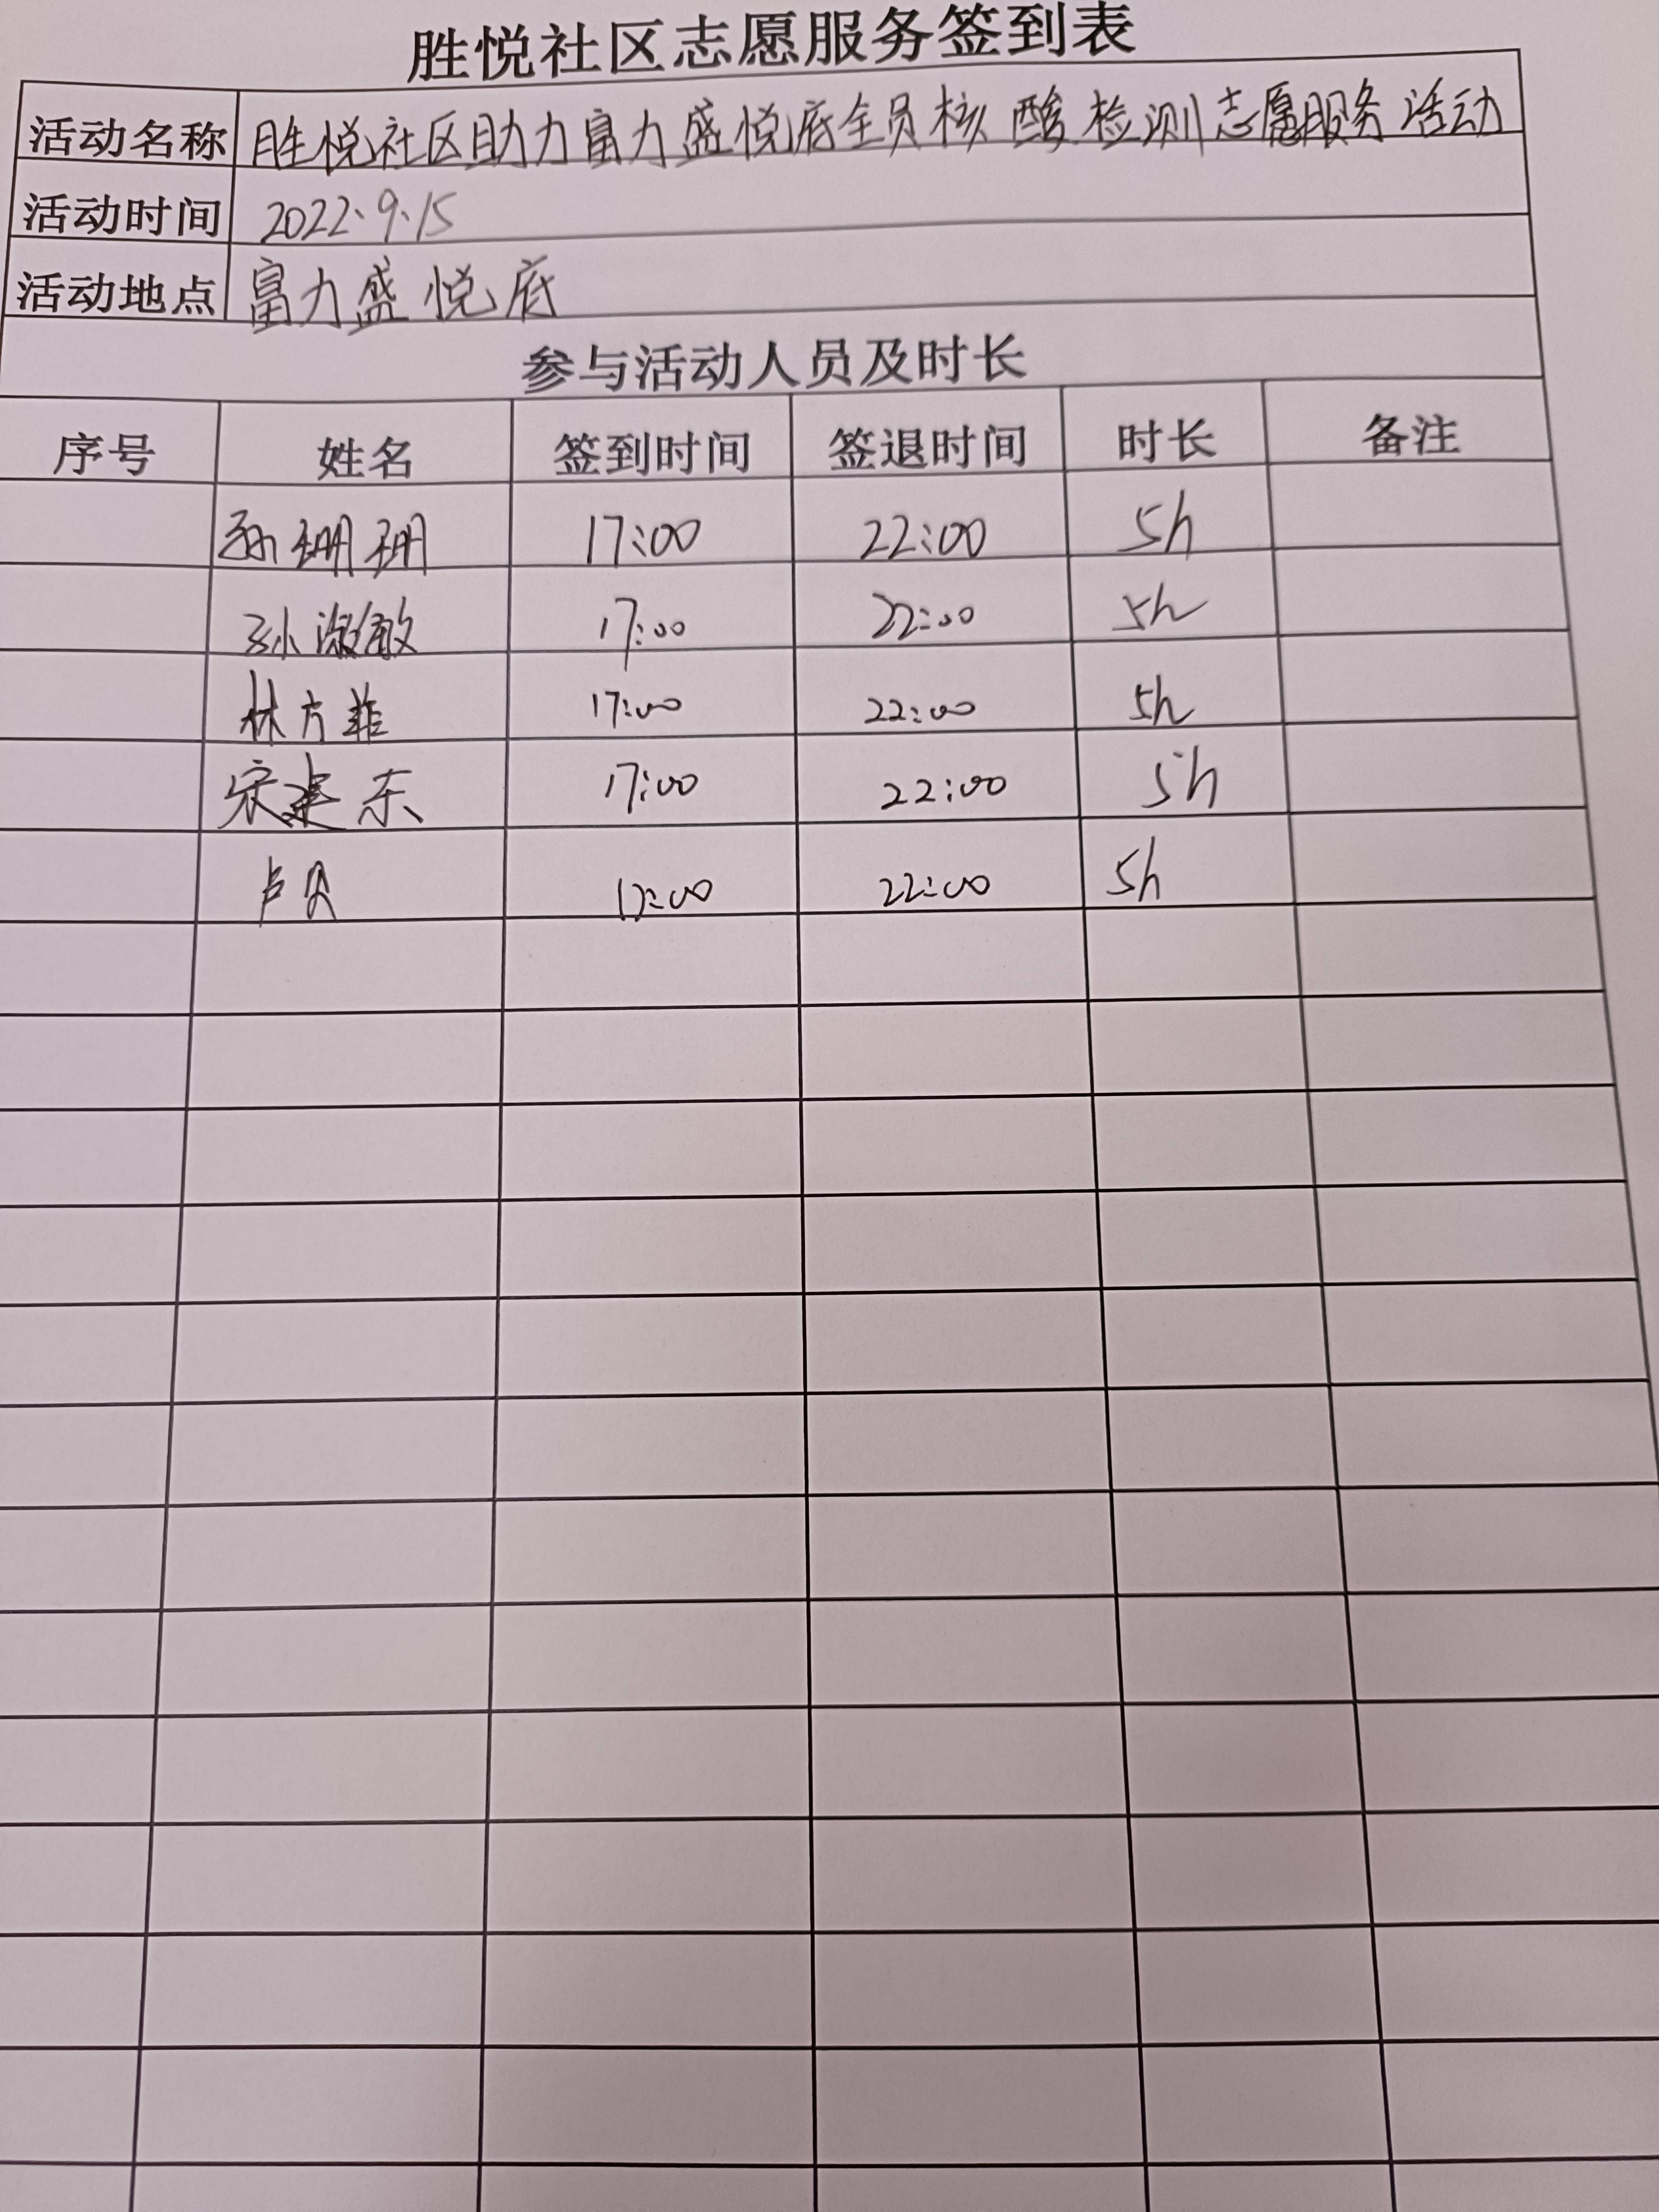 胜悦社区志愿服务签到表
活动名称 胜悦社区助力富力盛悦府全员核酸检测志愿服务活动
活动时间 2022.9.15
活动地点 富力盛悦府
参与活动人员及时长
序号 姓名 签到时间 签退时间 时长 备注
孙珊珊 17:00 22:00 5h
孙淑敏 17:00 22:00 5h
林方菲 17:00 22:00 5h
宋建东 17:00 22:00 5h
卢贝 17:00 22:00 5h